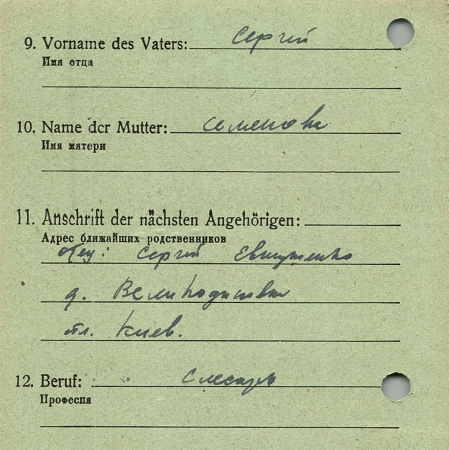 9. Vorname des Vaters: Сергій
Имя отца
10. Name der Mutter: Семенова
Имя матери
11. Anschrift der nächsten Angehörigen:
Адрес ближайших родственников
отец: Сергій Евтушенко
д.
Киев.
12. Beruf: Слесарь
Професия